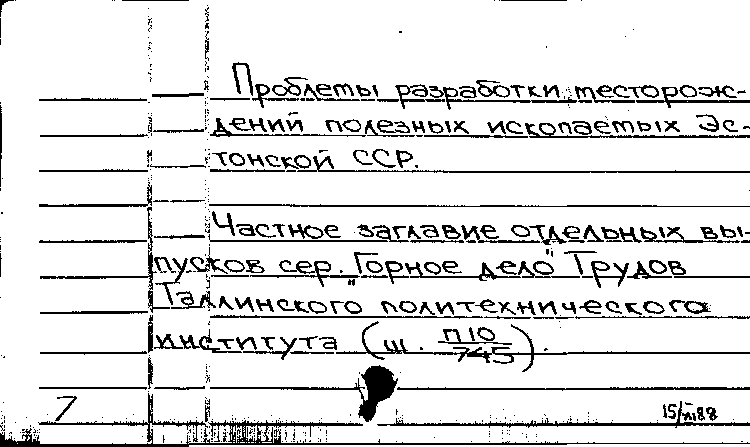 Проблемы разработки месторож-
дений полезных ископаемых Эс-
тонской ССР.
Частное заглавие отдельных вы-
пусков сер. "Горное дело" Трудов
Таллинского политехнического
института (ш. П10/745).
7
15/XI88